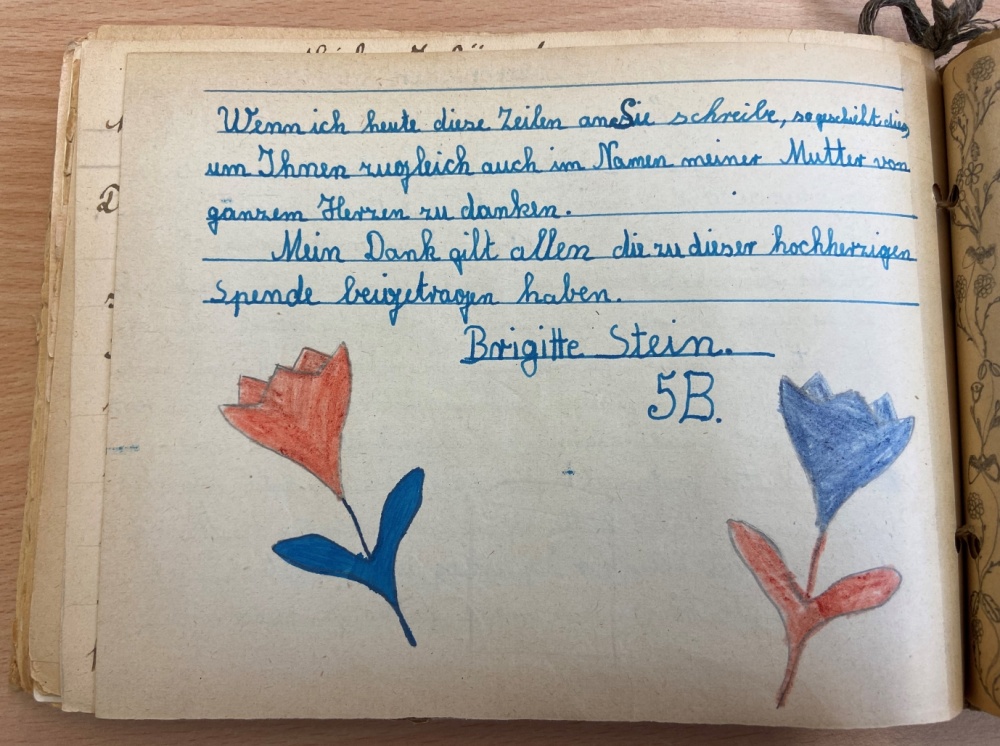 Wenn ich heute diese Zeilen an Sie schreibe, so geschieht dies,
um Ihnen zugleich auch im Namen meiner Mutter von
ganzem Herzen zu danken.
Mein Dank gilt allen die zu dieser hochherzigen
Spende beigetragen haben.
Brigitte Stein.
5B.